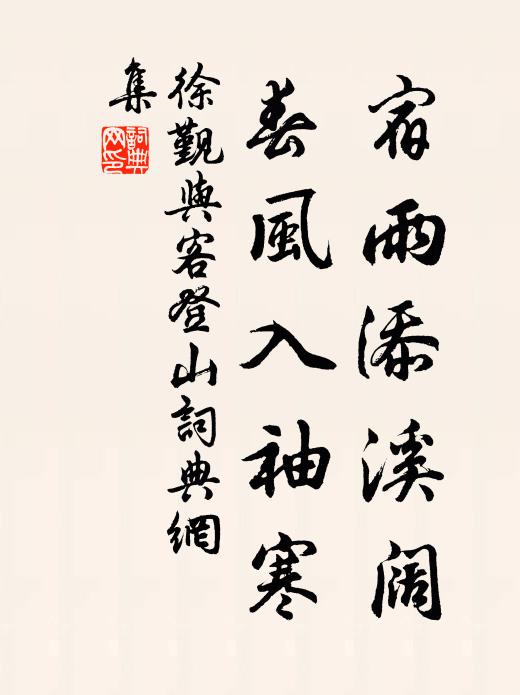 宿雨添溪阔
春風入袖寒
徐觐與客登山詞典網
集
詞典
网印